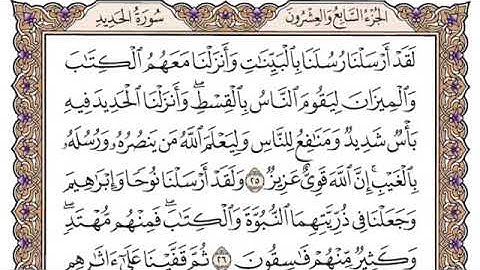 الجزء السابع والعشرون
سورة الحديد
لَقَدْ أَرْسَلْنَا رُسُلَنَا بِالْبَيِّنَاتِ وَأَنزَلْنَا مَعَهُمُ الْكِتَابَ
وَالْمِيزَانَ لِيَقُومَ النَّاسُ بِالْقِسْطِ ۖ وَأَنزَلْنَا الْحَدِيدَ فِيهِ
بَأْسٌ شَدِيدٌ وَمَنَافِعُ لِلنَّاسِ وَلِيَعْلَمَ اللَّهُ مَن يَنصُرُهُ وَرُسُلَهُ
بِالْغَيْبِ ۚ إِنَّ اللَّهَ قَوِيٌّ عَزِيزٌ ٢٥ وَلَقَدْ أَرْسَلْنَا نُوحًا وَإِبْرَاهِيمَ
وَجَعَلْنَا فِي ذُرِّيَّتِهِمَا النُّبُوَّةَ وَالْكِتَابَ ۖ فَمِنْهُم مُّهْتَدٍ ۖ
وَكَثِيرٌ مِّنْهُمْ فَاسِقُونَ ٢٦ ثُمَّ قَفَّيْنَا عَلَىٰ آثَارِهِم